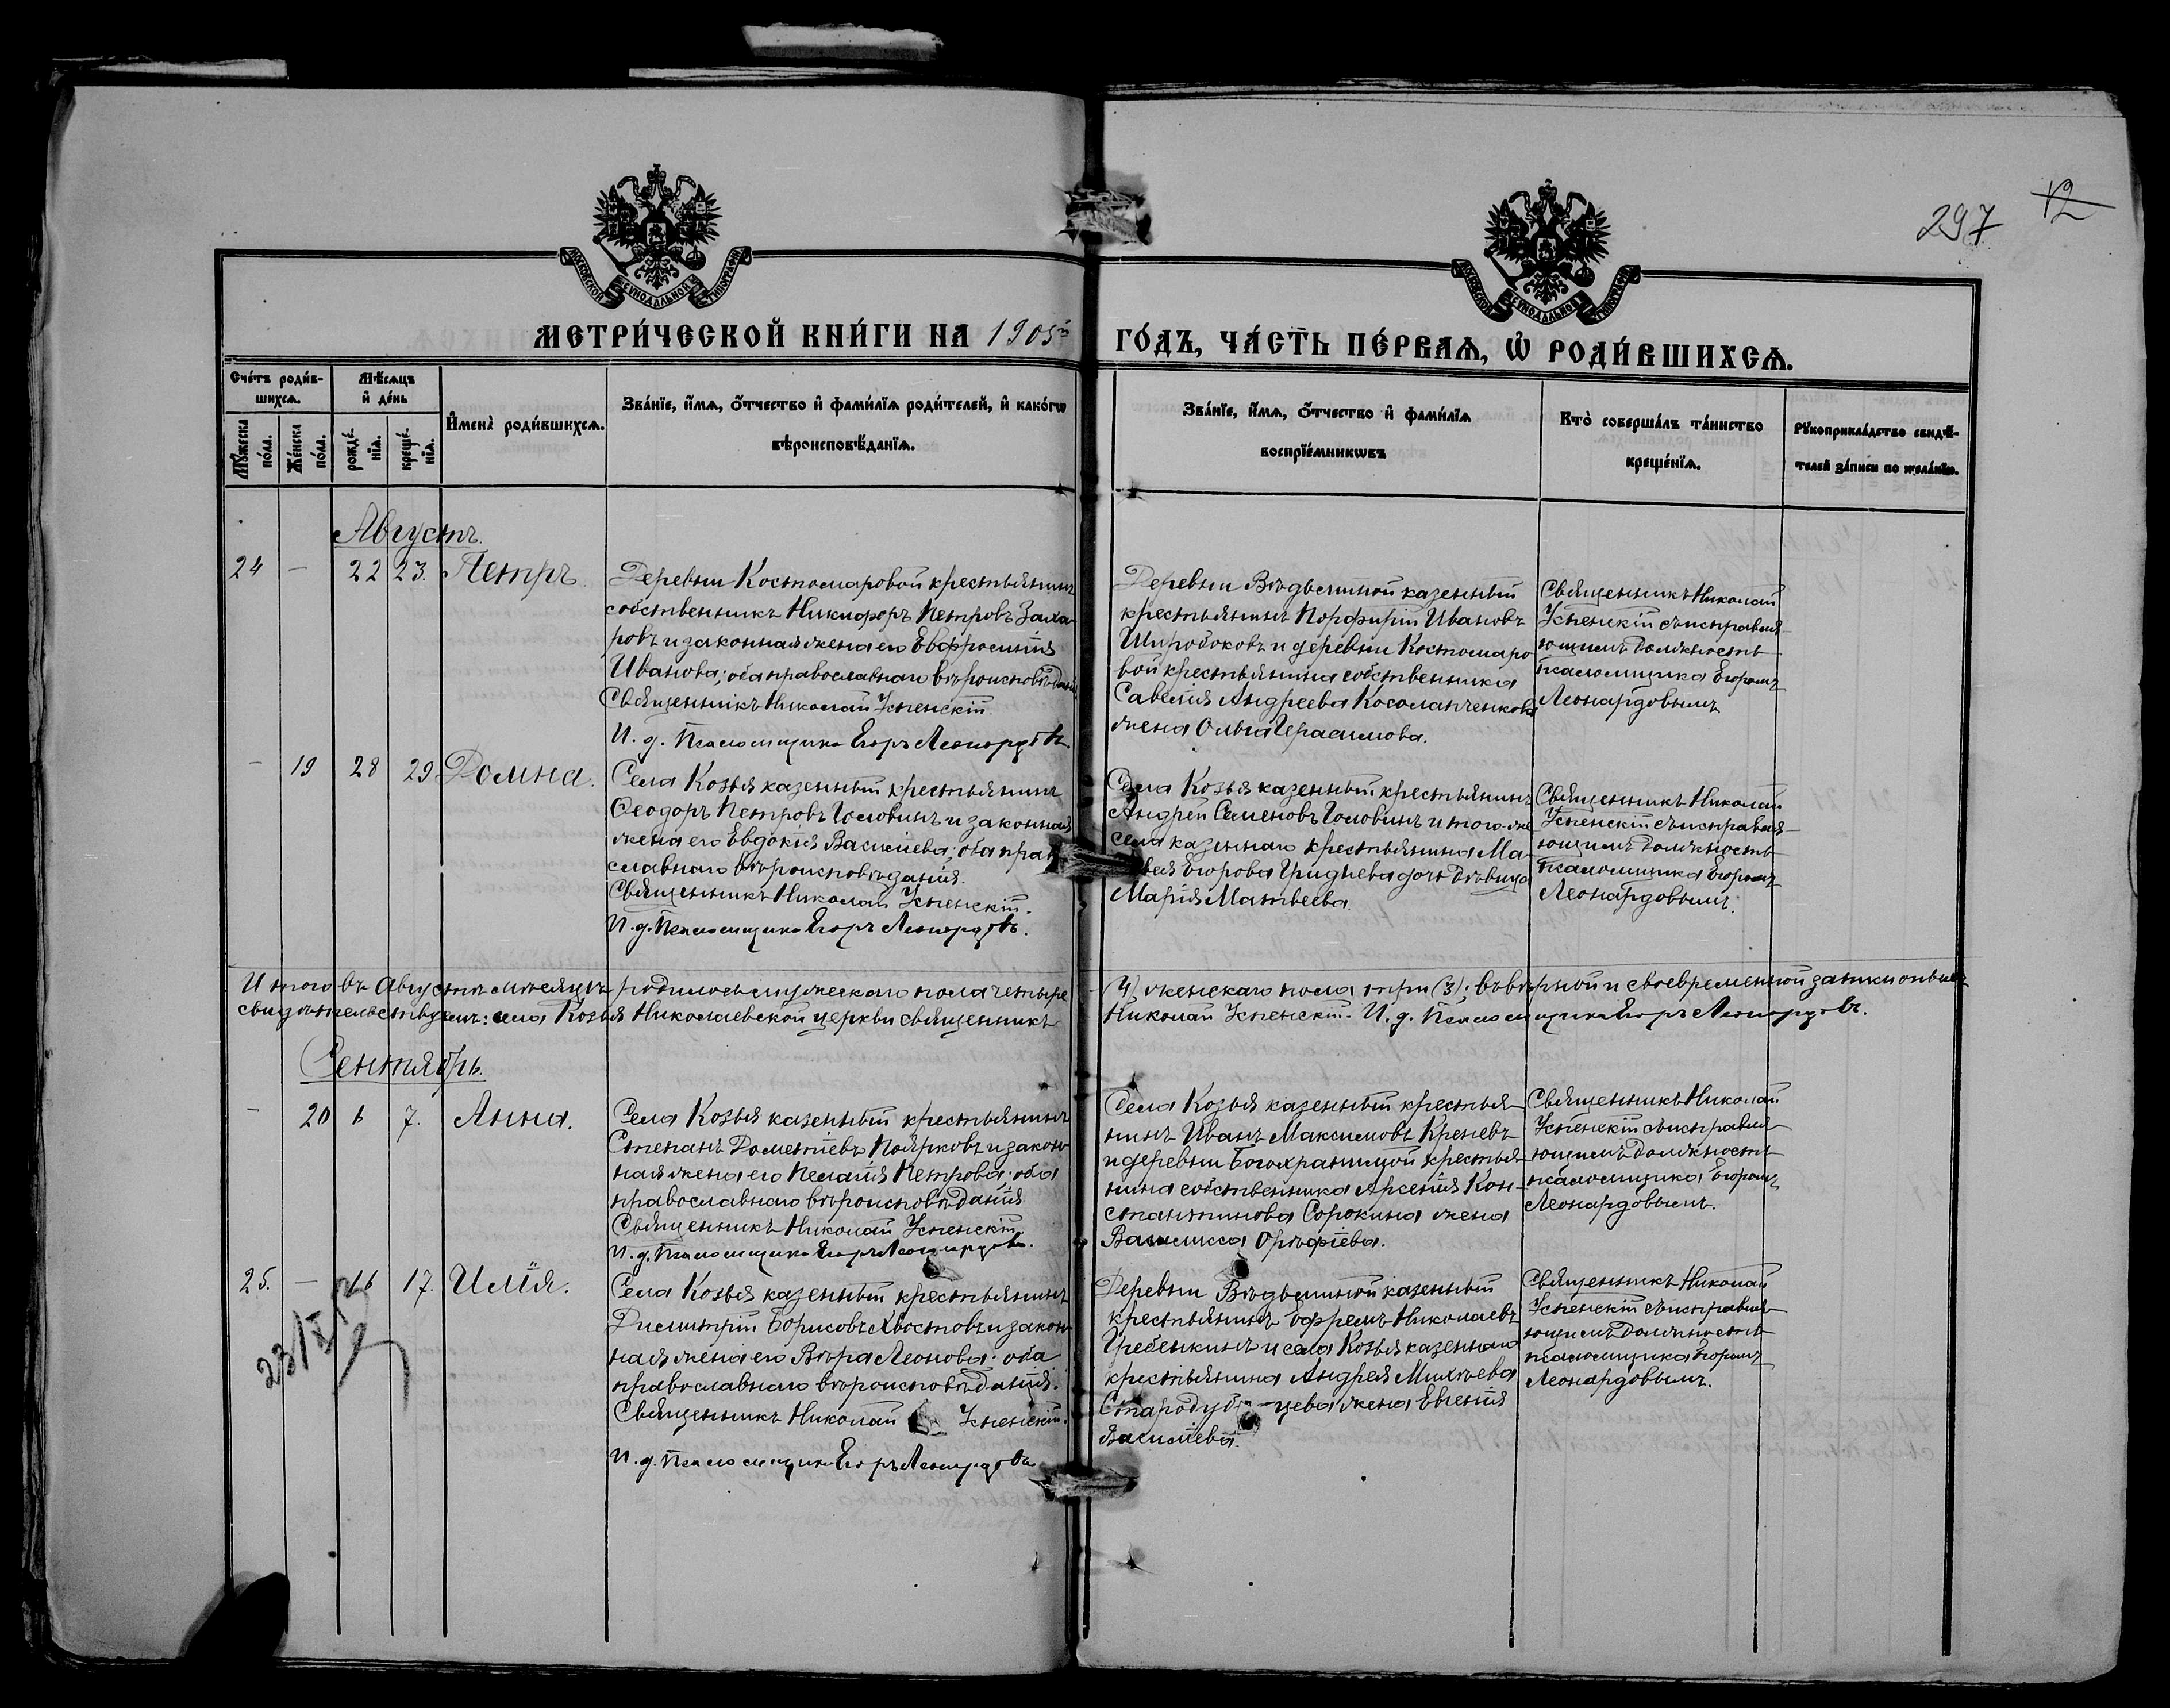 297 12
МОСКОВСКОЙ СѴНОДАЛЬНОЙ ТИПОГРАФІИ
МОСКОВСКОЙ СѴНОДАЛЬНОЙ ТИПОГРАФІИ
МЕТРИ́ЧЕСКОЙ КНИ́ГИ НА 1905й
ГО́ДЪ, ЧА́СТЬ ПЕ́РВАѦ, Ѡ РОДИ́ВШИХСѦ.
Сче́тъ роди́в-
шихсѧ.
Мꙋ́жеска по́ла.
Же́нска по́ла.
Мѣ́сѧцъ
и҆ де́нь
рожде́-
нїѧ.
креще́-
нїѧ.
И҆мена̀ роди́вшихсѧ.
Зва́нїе, и҆́мѧ, ѻ҆́тчество и҆ фами́лїѧ роди́телей, и҆ како́гѡ
вѣроисповѣ́данїѧ.
Зва́нїе, и҆́мѧ, ѻ҆́тчество и҆ фами́лїѧ
воспрїе́мникѡвъ
Кто̀ соверша́лъ та́инство
креще́нїѧ.
Рꙋкоприкла́дство свидѣ́-
телей за́писи по жела́нїю.
Августъ.
24 — 22 23. Петръ.
Деревни Костомаровой крестьянинъ
собственникъ Никифоръ Петровъ Заха-
ровъ и законная жена его Евфросинія
Иванова; оба православнаго вѣроисповѣданія
Священникъ Николай Успенскій
И. д. Псаломщика Егоръ Леонардовъ.
Деревни казенный
крестьянинъ Порфирій Ивановъ
Широбоковъ и деревни Костомаро
вой крестьянина собственника
Савелія Андреева Косоланченкова
жена Ольга Герасимова.
Священникъ Николай
Успенскій съ исправля-
ющимъ должность
псаломщика Егоромъ
Леонардовымъ
— 19 28 29 Домна.
Села Козья казенный крестьянинъ
Ѳеодоръ Петровъ Головинъ и законная
жена его Евдокія Васильева; оба пра
славнаго вѣроисповѣданія.
Священникъ Николай Успенскій.
И. д. Псаломщика Егоръ Леонардовъ.
Села Козья казенный крестьянинъ
Андрей Семеновъ Головинъ и того-же
села казеннаго крестьянина Ма-
вея Егорова Гриднева дочь дѣвица
Марія Матвеева.
Священникъ Николай
Успенскій съ исправля-
ющимъ должность
псаломщика Егоромъ
Леонардовымъ.
Итого въ Августѣ мѣсяцѣ родилось мужескаго пола четыре
(4) женскаго пола три (3); въ вѣрной и своевременной записи оныхъ
свидѣтельствуемъ: села Козья Николаевской церкви священникъ
Николай Успенскій. И. д. Псаломщика Егоръ Леонардовъ.
Сентябрь.
— 20 6 7. Анна.
Села Козья казенный крестьянинъ
Степанъ Дометіевъ Поярковъ и закон-
ная жена его Пелагія Петрова; оба
православнаго вѣроисповѣданія
Священникъ Николай Успенскій.
И. д. Псаломщика Егоръ Леонардовъ.
Села Козья казенный крестья-
нинъ Иванъ Максимовъ Креневъ
и деревни Богохранимой крестья-
нина собственника Арсенія Кон-
стантинова Сорокина жена
Василисса
Священникъ Николай
Успенскій съ исправля-
ющимъ должность
псаломщика Егоромъ
Леонардовымъ.
25. — 16 17. Илія.
Села Козья казенный крестьянинъ
Димитрій Борисовъ Хвостовъ и закон-
ная жена его Вѣра Леонова; оба
православнаго вѣроисповѣданія.
Священникъ Николай Успенскій.
И. д. Псаломщика Егоръ Леонардовъ
Деревни казенный
крестьянинъ Ефремъ Николаевъ
Гребенкинъ и села Козья казеннаго
крестьянина Андрея Михѣева
Стародуб-цева жена Евгенія
Васильева.
Священникъ Николай
Успенскій съ исправля-
ющимъ должность
псаломщика Егоромъ
Леонардовымъ.